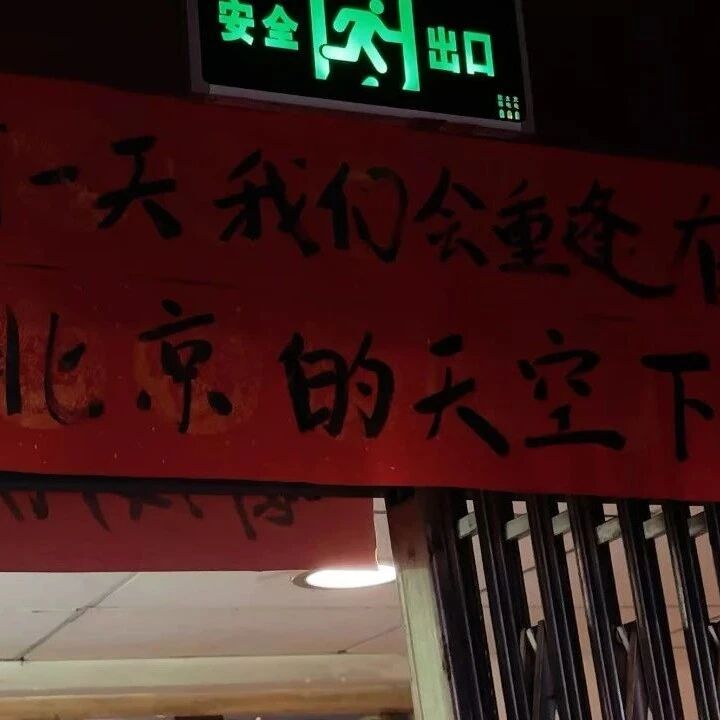 安全出口
一天我们会重逢在
北京的天空下